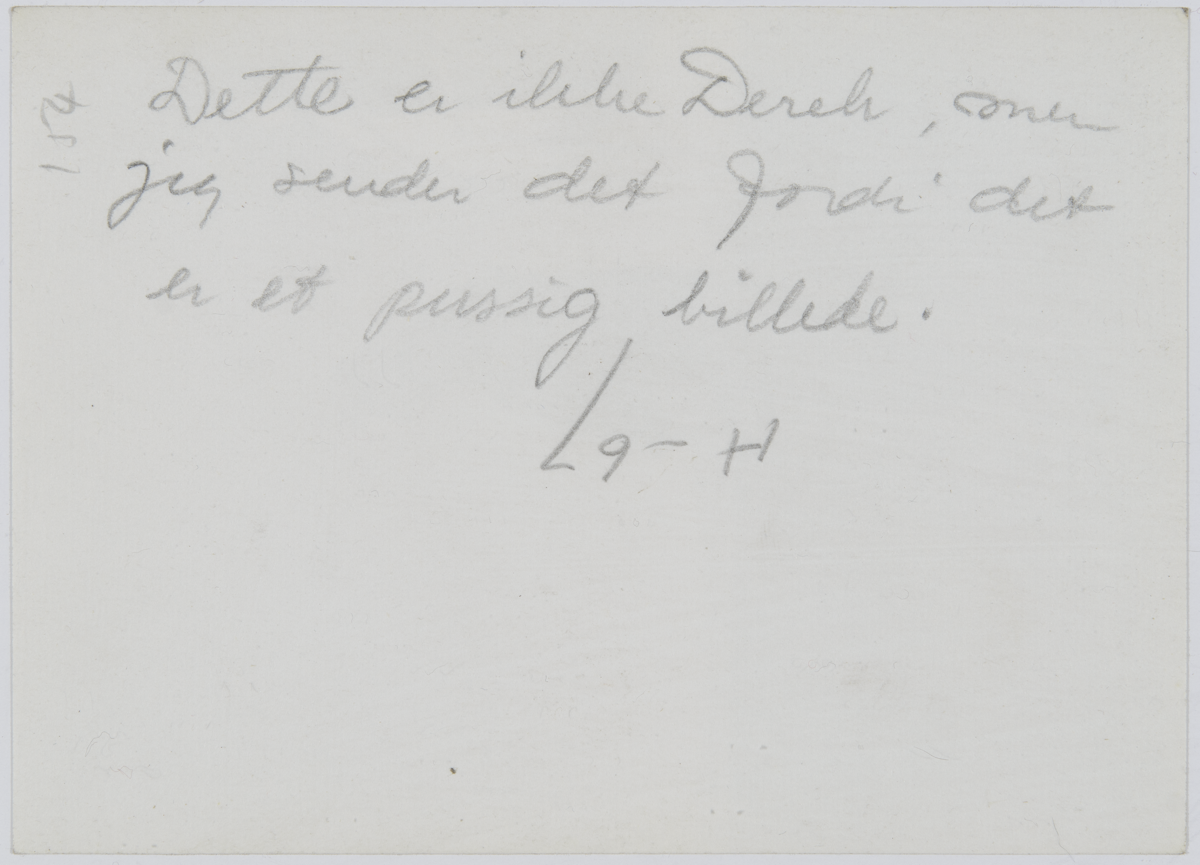 Dette er ikke Derek, men
jeg sender det fordi det
er et pussig billede.
154